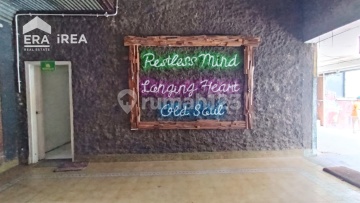 ERA iREA
REAL ESTATE
Restless Mind
Longing Heart
Old Soul
rumah123